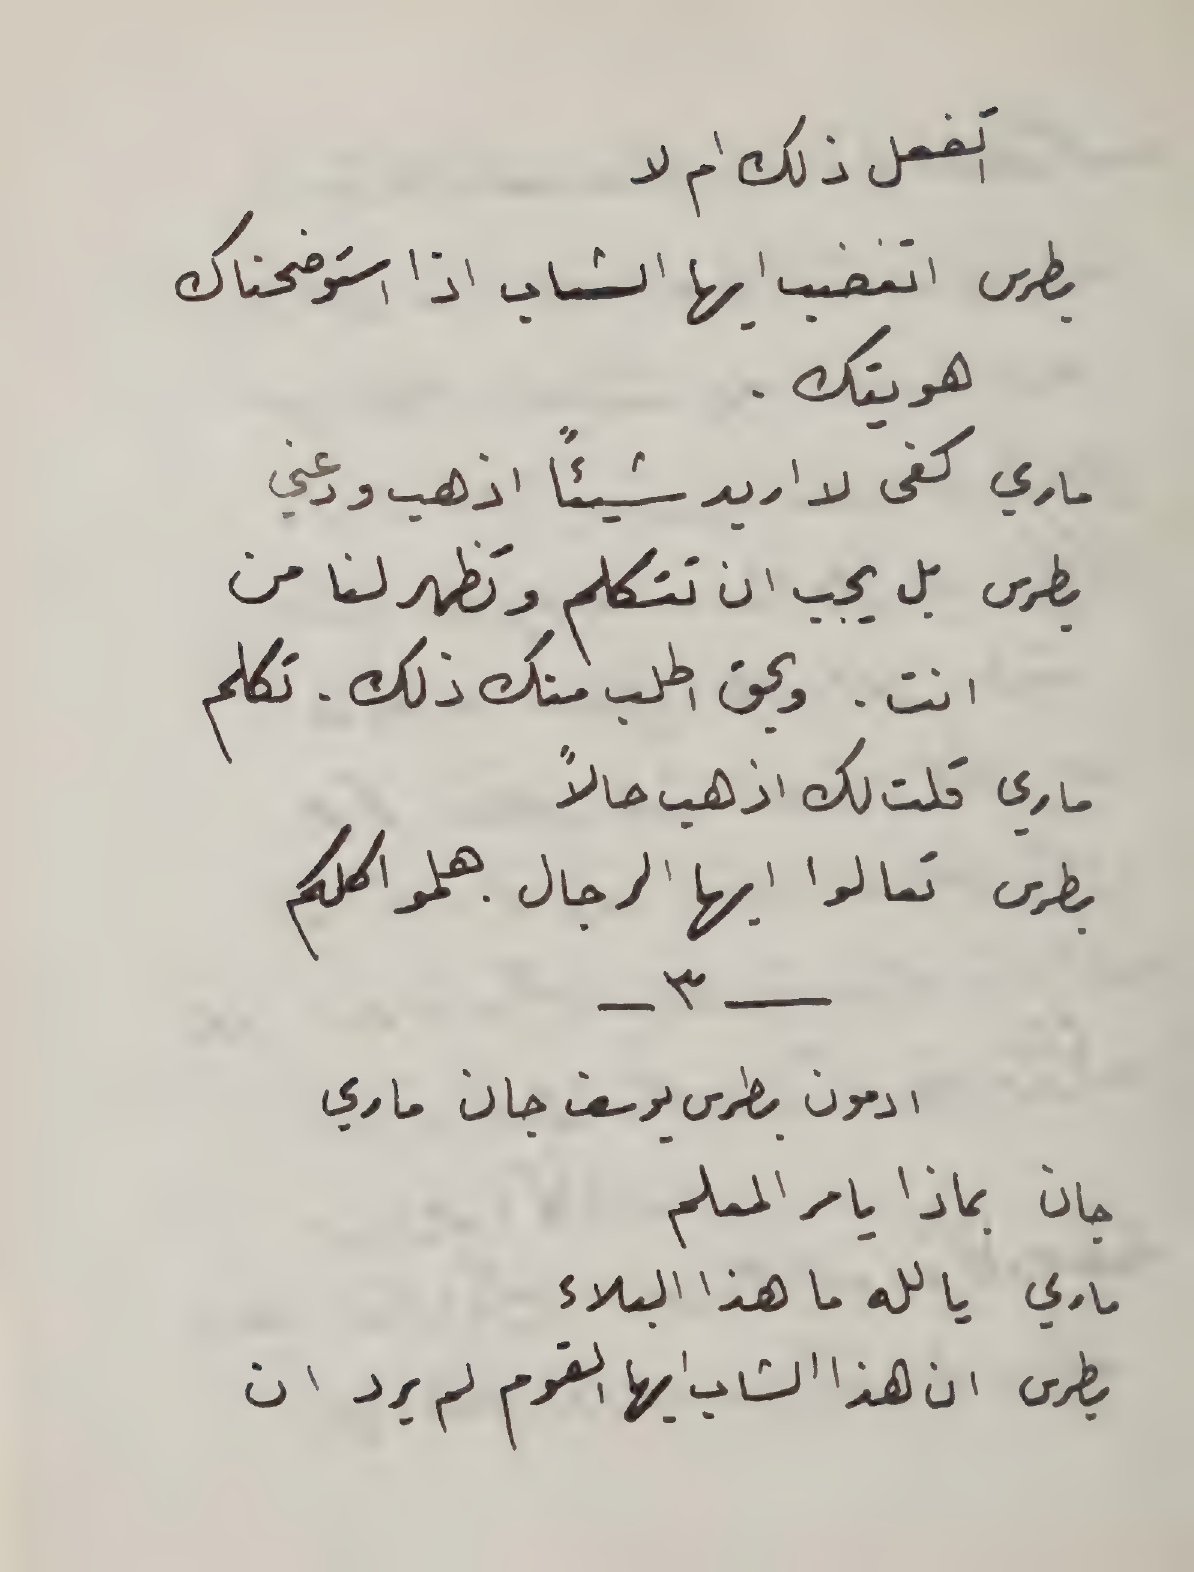 اتفعل ذلك ام لا
بطرس اتغضب ايها الشاب اذا استوضحناك
هويتك .
ماري كفى لا اريد شيئًا اذهب ودعني
بطرس بل يجب ان تتكلم وتظهر لنا من
انت . وبحق اطلب منك ذلك . تكلم
ماري قلت لك اذهب حالاً
بطرس تعالوا ايها الرجال . هلموا كلكم
— ٣ —
ادمون بطرس يوسف جان ماري
جان بماذا يامر المعلم
ماري يالله ما هذا البلاء
بطرس ان هذا الشاب ايها القوم لم يرد ان